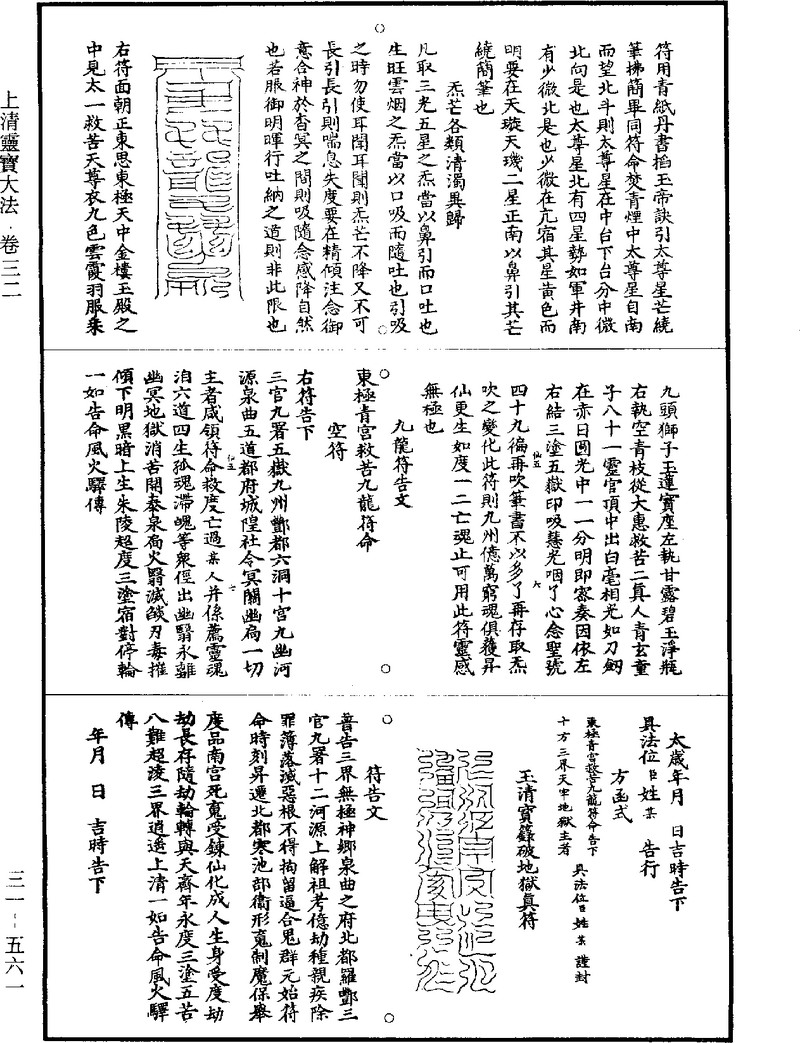 符用青紙丹書掐玉帝訣引太尊星芒繞
筆拂簡畢同符命焚青煙中太尊星自南
而望北斗則太尊星在中台下台分中微
北向是也太尊星北有四星勢如軍井南
有少微北是也少微在亢宿其星黃色而
明要在天璇天璣二星正南以鼻引其芒
繞簡筆也
炁芒各類清濁異歸
凡取三光五星之炁當以鼻引而口吐也
生旺雲烟之炁當以口吸而隨吐也引吸
之時勿使耳聞耳聞則炁芒不降又不可
長引長引則喘息失度要在精傾注念御
意合神於杳冥之間則吸隨念感降自然
也若服御明暉行吐納之道則非此限也
右符面朝正東思東極天中金樓玉殿之
中見太一救苦天尊衣九色雲霞羽服乘
九頭獅子玉蓮寶座左執甘露碧玉淨瓶
右執空青枝從大惠救苦二真人青玄童
子八十一靈官頂中出白毫相光如刀劒
在赤日圓光中一一分明即密奏因依左
右結三塗五嶽印吸慧光咽了心念聖號
四十九徧再吹筆書不以多了再存取炁
吹之變化此符則九州億萬窮魂俱獲昇
仙更生如度一二亡魂止可用此符靈感
無極也
九龍符告文
東極青宮救苦九龍符命
空符
右符告下
三官九署五嶽九州酆都六洞十宮九幽河
源泉曲五道都府城隍社令冥關幽扃一切
主者咸領符命救度亡過某人并係薦靈魂
洎六道四生孤魂滯魄等衆俓出幽翳永離
幽冥地獄消苦開泰泉扃火翳滅燄刃毒摧
傾下明黑暗上生朱陵超度三塗宿對停輪
一如告命風火驛傳
太歲年月　日吉時告下
具法位臣姓某　告行
方函式
東極青宮救苦九龍符命告下
十方三界天牢地獄主者
具法位臣姓某謹封
玉清寶籙破地獄真符
符告文
普告三界無極神鄉泉曲之府北都羅酆三
官九署十二河源上解祖考億劫種親疾除
罪簿落滅惡根不得拘留逼合鬼群元始符
命時刻昇遷北都寒池部衛形魂制魔保舉
度品南宮死魂受鍊仙化成人生身受度劫
劫長存隨劫輪轉與天齊年永度三塗五苦
八難超凌三界逍遙上清一如告命風火驛
傳
年月　日　吉時告下
上清靈寶大法·卷三二
三一-五六一